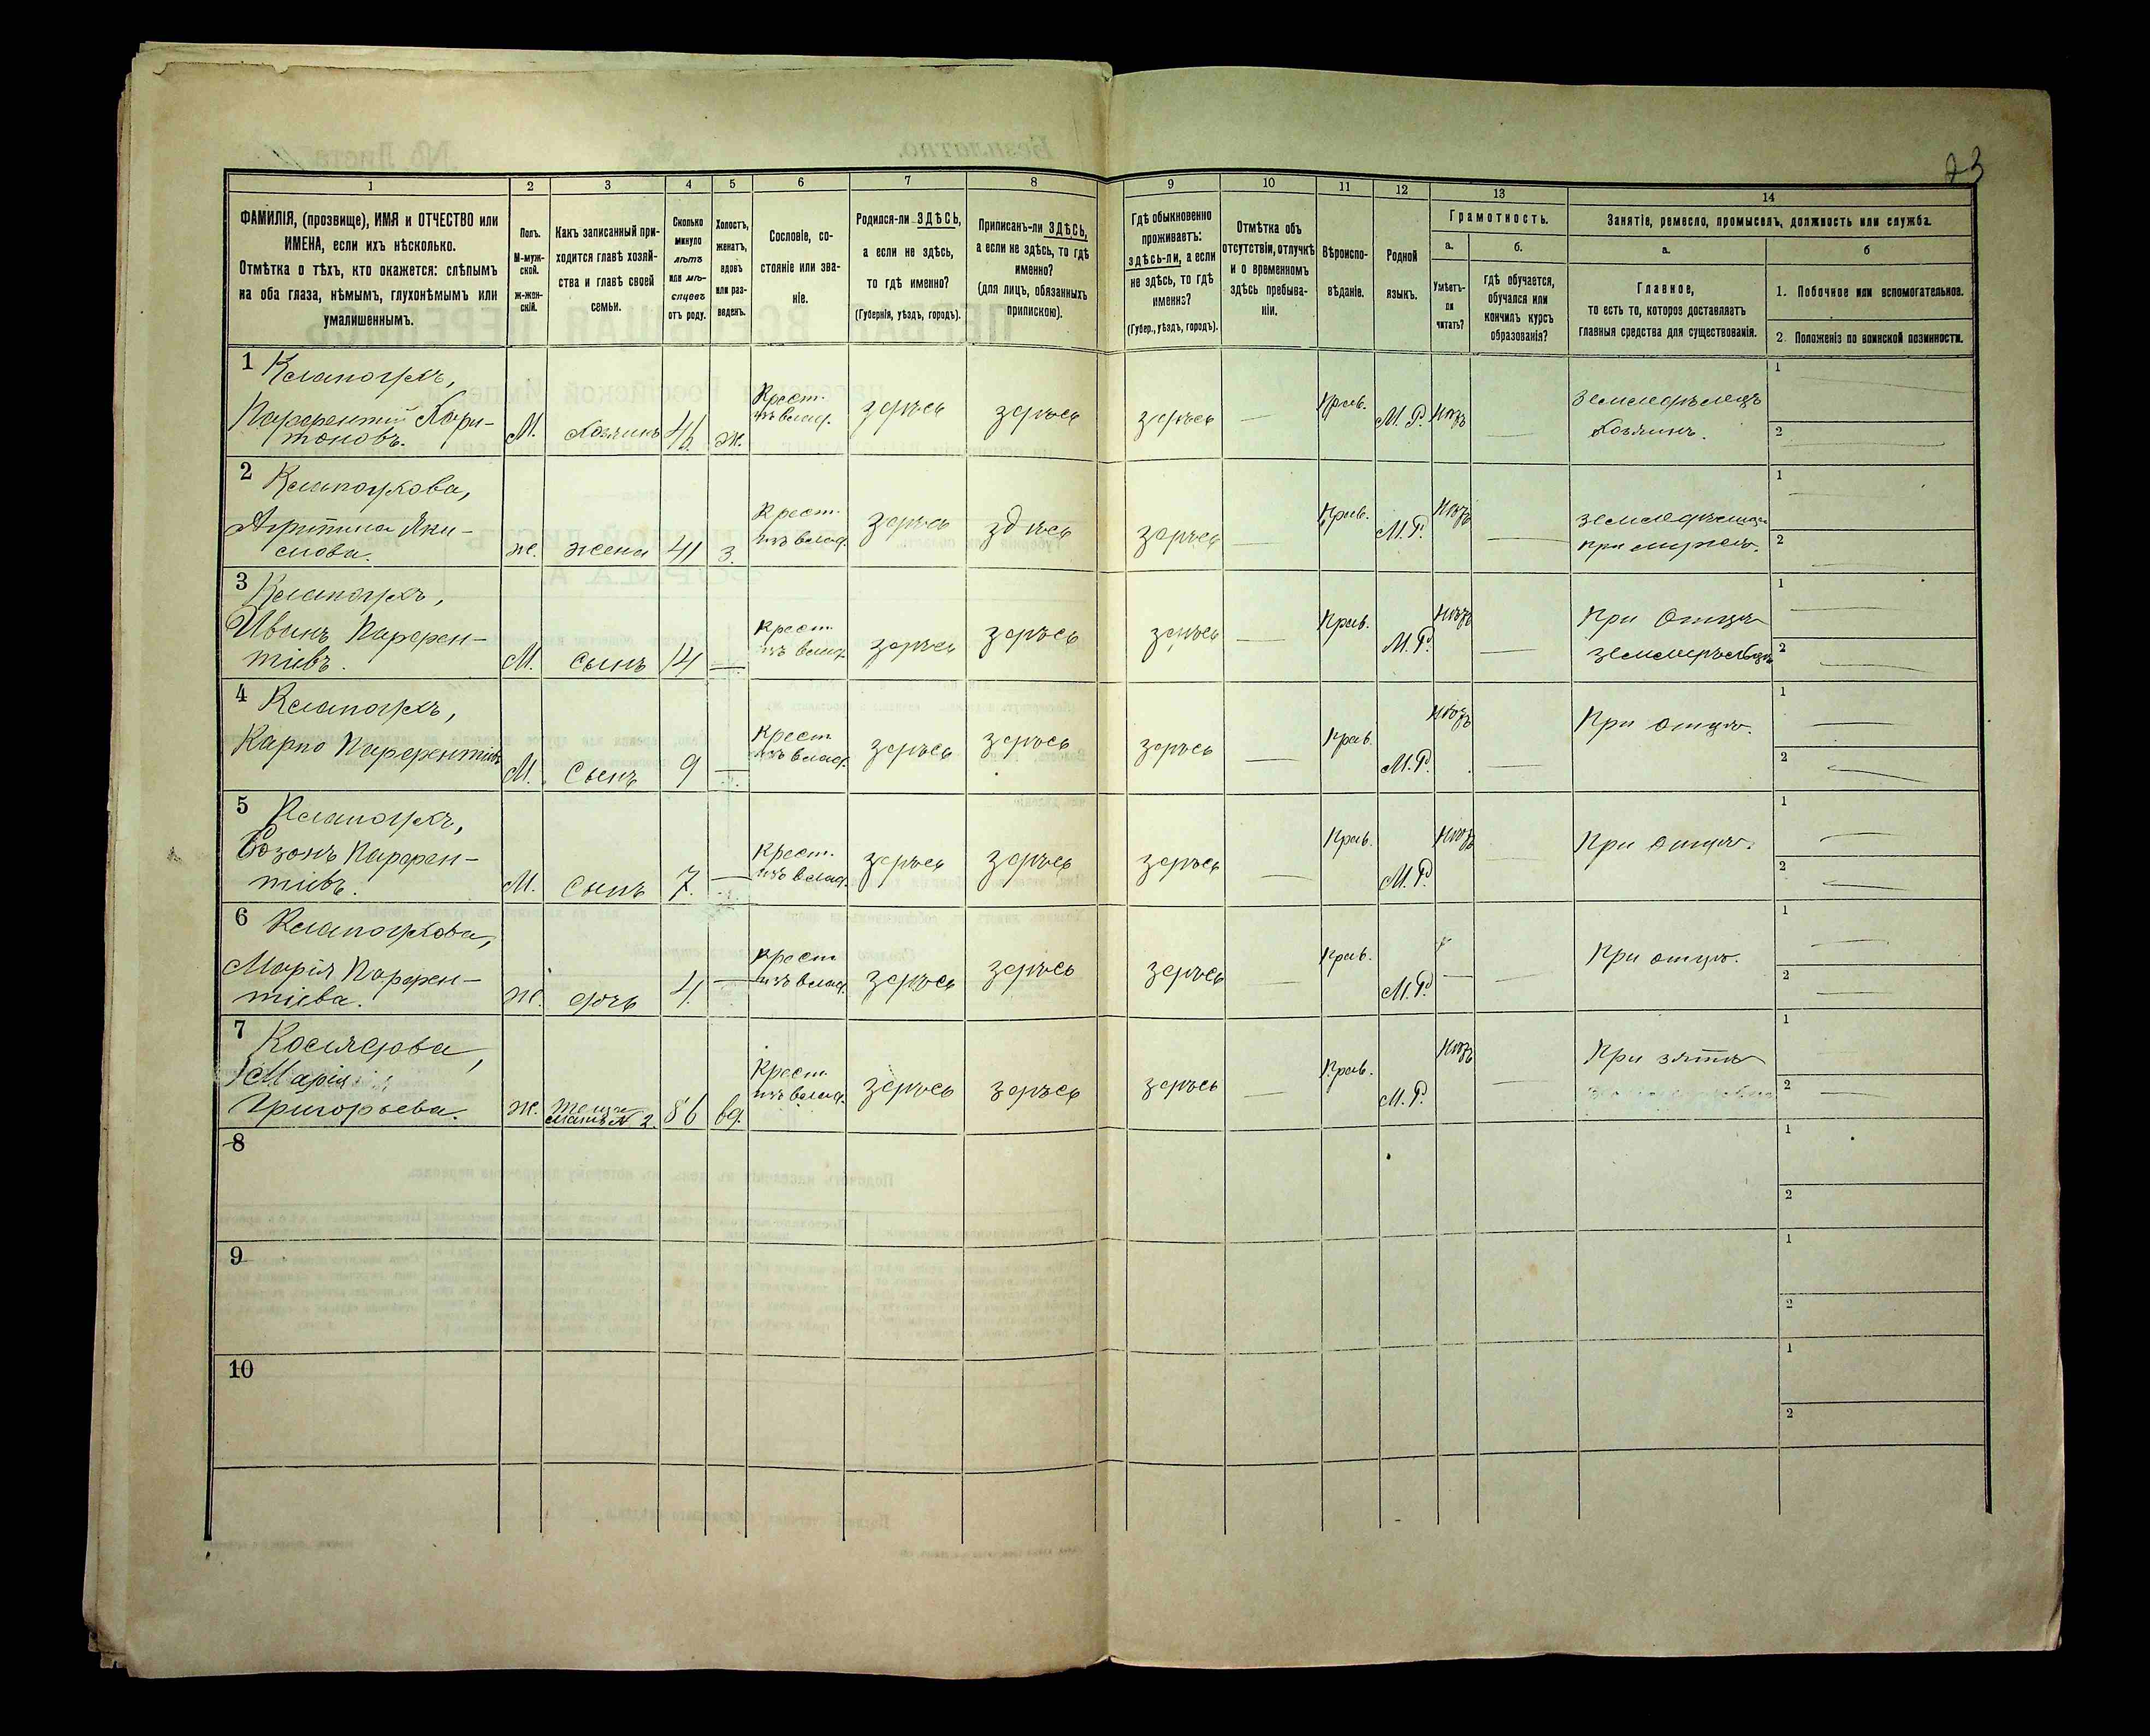 23
1 2 3 4 5 6 7 8 9 10 11 12 13 14
ФАМИЛІЯ, (прозвище), ИМЯ и ОТЧЕСТВО или
ИМЕНА, если ихъ нѣсколько.
Отмѣтка о тѣхъ, кто окажется: слѣпымъ
на оба глаза, нѣмымъ, глухонѣмымъ или
умалишеннымъ.
Полъ.
М-муж-
ской.
ж-жен-
скій.
Какъ записанный при-
ходится главѣ хозяй-
ства и главѣ своей
семьи.
Сколько
минуло
лѣтъ
или мѣ-
сяцевъ
отъ роду.
Холостъ,
женатъ,
вдовъ
или раз-
веденъ.
Сословіе, со-
стояніе или зва-
ніе.
Родился-ли ЗДѢСЬ,
а если не здѣсь,
то гдѣ именно?
(Губернія, уѣздъ, городъ).
Приписанъ-ли ЗДѢСЬ,
а если не здѣсь, то гдѣ
именно?
(для лицъ, обязанныхъ
припискою).
Гдѣ обыкновенно
проживаетъ:
здѣсь-ли, а если
не здѣсь, то гдѣ
именно?
(Губер., уѣздъ, городъ).
Отмѣтка объ
отсутствіи, отлучкѣ
и о временномъ
здѣсь пребыва-
ніи.
Вѣроиспо-
вѣданіе.
Родной
языкъ.
Грамотность.
а.
Умѣетъ-
ли
читать?
б.
гдѣ обучается,
обучался или
кончилъ курсъ
образованія?
Занятіе, ремесло, промыселъ, должность или служба.
а.
Главное,
то есть то, которое доставляетъ
главныя средства для существованія.
б
1. Побочное или вспомогательное.
2. Положеніе по воинской повинности.
1
Парфентій Хари-
тоновъ.
М. Хозяинъ 46 ж.
Крест.
изъ влад. здѣсь здѣсь здѣсь — Прав. М. Р. нѣтъ —
земледѣлецъ
Хозяинъ.
1
2
2
ж. жена 41 з.
Крест.
изъ влад. здѣсь здѣсь здѣсь — Прав. М. Р. нѣтъ —
при мужѣ.
1
2
3
Иванъ Парфен-
тіевъ.
М. сынъ 14 —
Крест.
изъ влад. здѣсь здѣсь здѣсь — Прав. М. Р. нѣтъ —
При отцѣ
1
2
4
Карпо Парфентіевъ
М. сынъ 9 —
Крест
изъ влад. здѣсь здѣсь здѣсь — Прав. М. Р. нѣтъ —
При отцѣ.
1
2
5
Созонъ Парфен-
тіевъ.
М. сынъ 7. —
Крест.
изъ влад. здѣсь здѣсь здѣсь — Прав. М. Р. нѣтъ —
При отцѣ.
1
2
6
Марія Парфен-
тіева.
ж. дочь 4. —
Крест
изъ влад. здѣсь здѣсь здѣсь — Прав. М. Р. — —
При отцѣ.
1
2
7
Марія
Григорьева.
ж. мать № 2. 86 вд.
Крест.
изъ влад. здѣсь здѣсь здѣсь — Прав. М. Р. нѣтъ —
При зятѣ
1
2
8
1
2
9
1
2
10
1
2